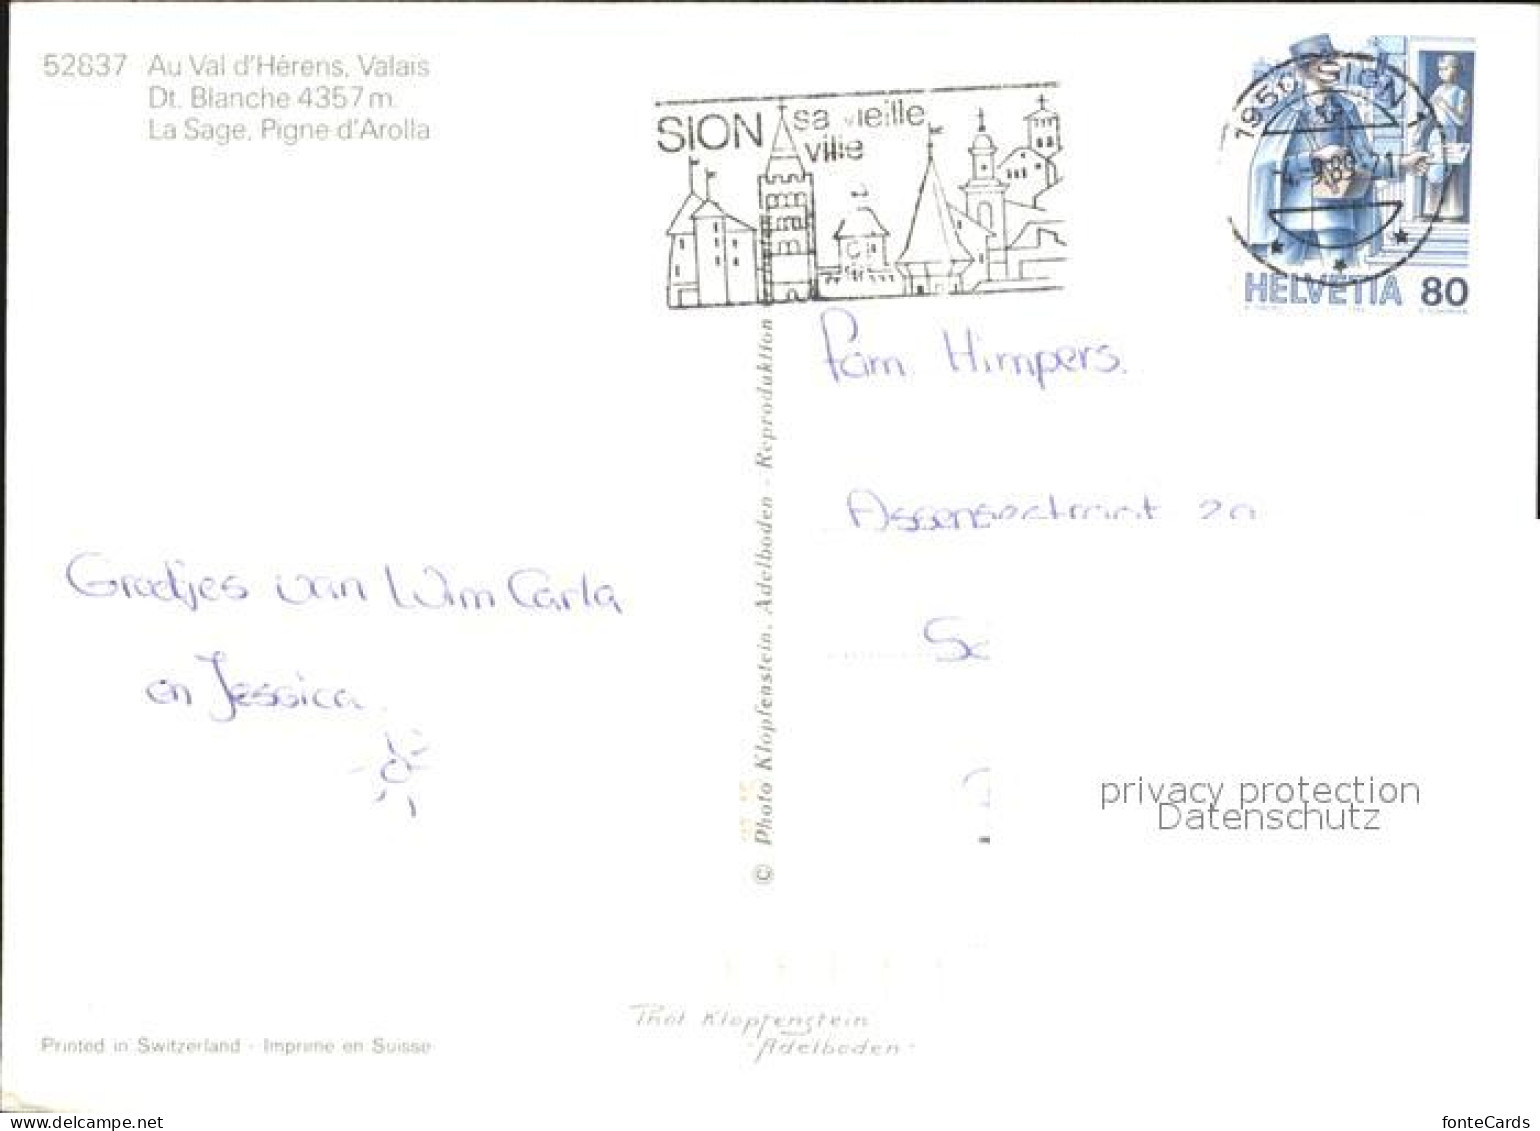 52837 Au Val d'Hérens, Valais
Dt. Blanche 4357 m
La Sage, Pigne d'Arolla
SION sa vieille
ville
1950 SION 1
-4.-9.89-21
HELVETIA 80
Fam. Himpers.
2a
Groetjes van Wim Carla
en Jessica.
© Photo Klopfenstein, Adelboden - Reproduktion
privacy protection
Datenschutz
Phot. Klopfenstein
Adelboden
Printed in Switzerland - Imprimé en Suisse
delcampe.net
fonteCards